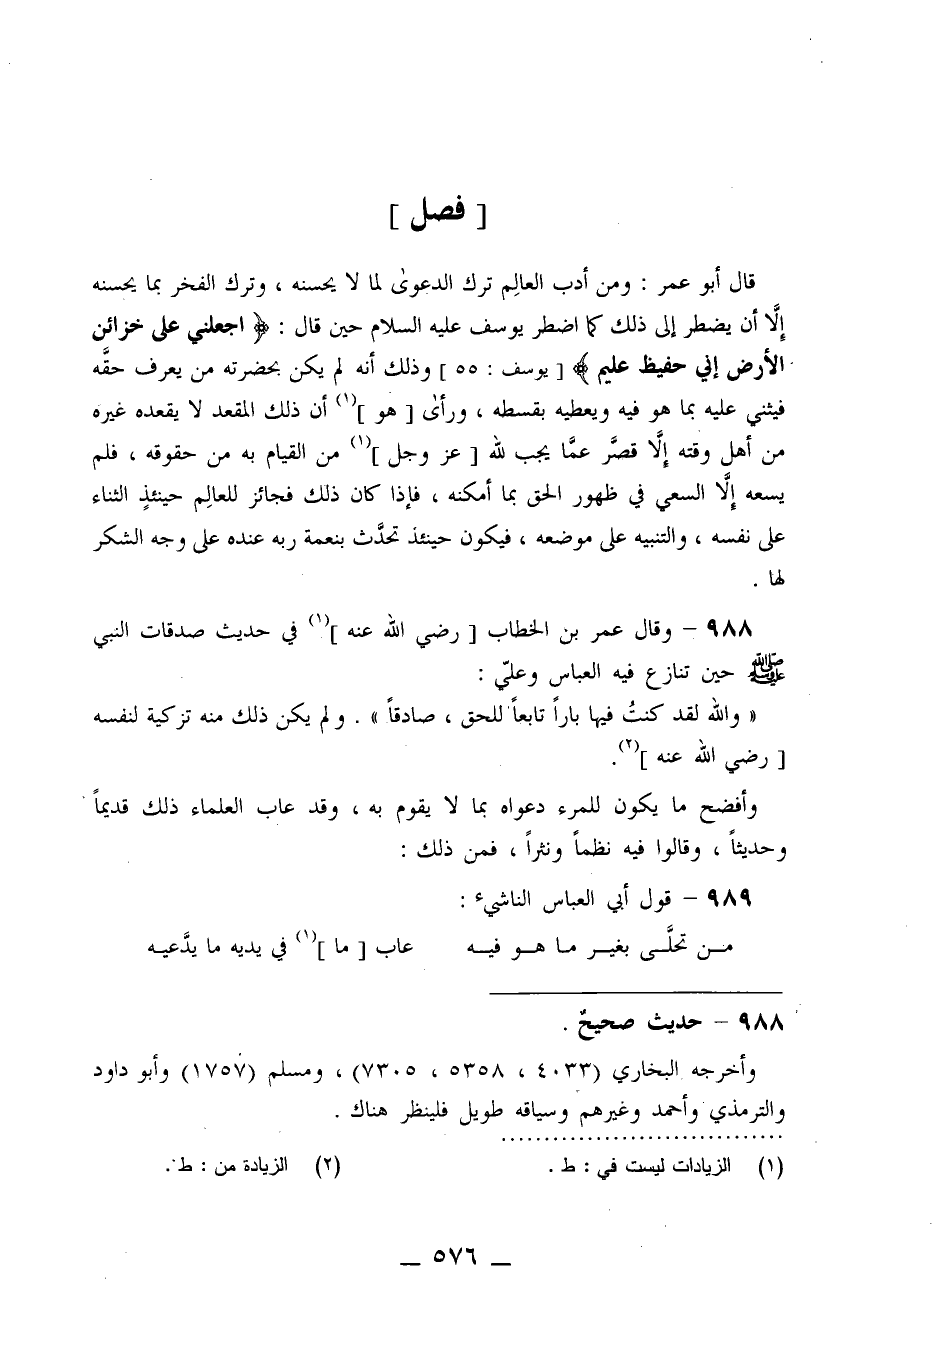 [ فصل ]
قال أبو عمر : ومن أدب العالِم ترك الدعوىٰ لما لا يحسنه ، وترك الفخر بما يحسنه
إلَّا أن يضطر إلى ذلك كما اضطر يوسف عليه السلام حين قال : ﴿ اجعلني على خزائن
الأرض إني حفيظ عليم ﴾ [ يوسف : ٥٥ ] وذلك أنه لم يكن بحضرته من يعرف حقَّه
فيثني عليه بما هو فيه ويعطيه بقسطه ، ورأىٰ [ هو ](١) أن ذلك المقعد لا يقعده غيره
من أهل وقته إلَّا قصَّر عمَّا يجب لله [ عز وجل ](١) من القيام به من حقوقه ، فلم
يسعه إلَّا السعي في ظهور الحق بما أمكنه ، فإذا كان ذلك فجائز للعالِم حينئذٍ الثناء
على نفسه ، والتنبيه على موضعه ، فيكون حينئذ تحدَّث بنعمة ربه عنده على وجه الشكر
لها .
٩٨٨ – وقال عمر بن الخطاب [ رضي الله عنه ](١) في حديث صدقات النبي
ﷺ حين تنازع فيه العباس وعليّ :
« والله لقد كنتُ فيها باراً تابعاً للحق ، صادقاً » . ولم يكن ذلك منه تزكية لنفسه
[ رضي الله عنه ](٢).
وأفضح ما يكون للمرء دعواه بما لا يقوم به ، وقد عاب العلماء ذلك قديماً
وحديثاً ، وقالوا فيه نظماً ونثراً ، فمن ذلك :
٩٨٩ – قول أبي العباس الناشيء :
مـن تحلَّـى بغيـر مـا هـو فيـه عاب [ ما ](١) في يديه ما يدَّعيـه
٩٨٨ – حديث صحيحٌ .
وأخرجه البخاري (٤٠٣٣ ، ٥٣٥٨ ، ٧٣٠٥) ، ومسلم (١٧٥٧) وأبو داود
والترمذي وأحمد وغيرهم وسياقه طويل فلينظر هناك .
(١) الزيادات ليست في : ط . (٢) الزيادة من : ط .
ــ ٥٧٦ ــ